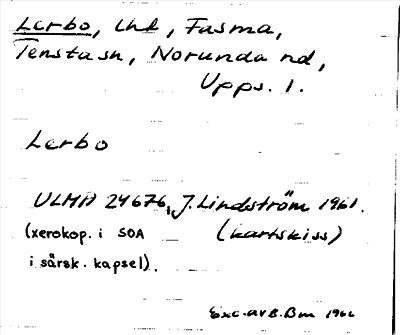 Lerbo, lhl, Fasma,
Tensta sn, Norunda hd,
Upps. l.
Lerbo
ULMA 24676, J. Lindström 1961.
(xerokop. i SOA (kartskiss)
i särsk. kapsel).
Exc. av B. Bm 1966